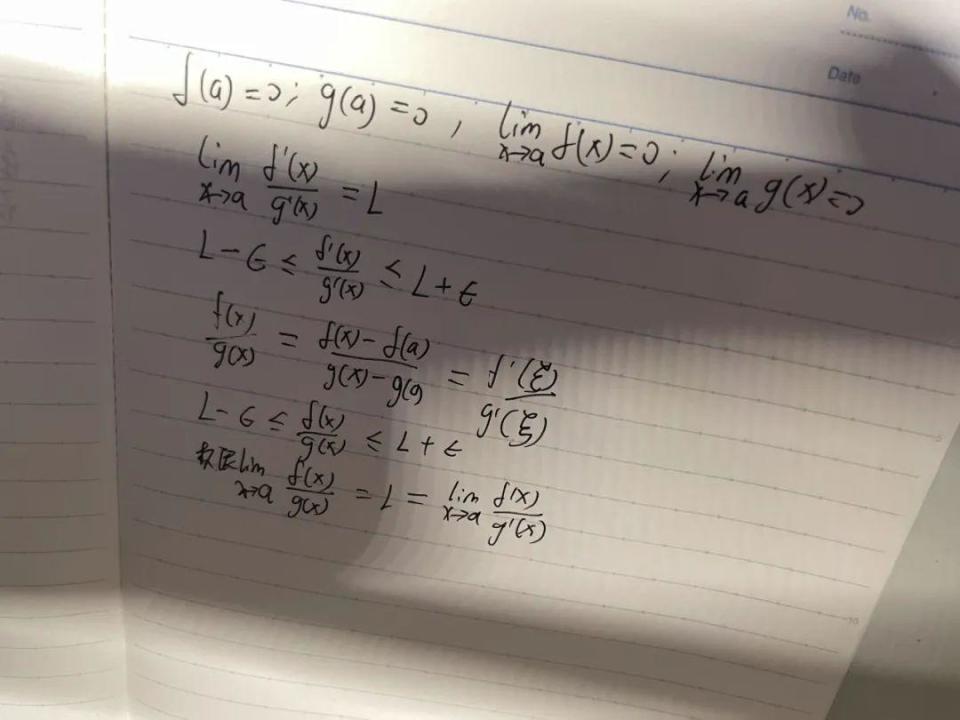 No.
Date
f(a)=0; g(a)=0, lim x→a f(x)=0; lim x→a g(x)=0
lim x→a f'(x)/g'(x) = L
L-ε ≤ f'(x)/g'(x) ≤ L+ε
f(x)/g(x) = f(x)-f(a)/g(x)-g(a) = f'(ξ)/g'(ξ)
L-ε ≤ f(x)/g(x) ≤ L+ε
lim x→a f(x)/g(x) = L = lim x→a f'(x)/g'(x)